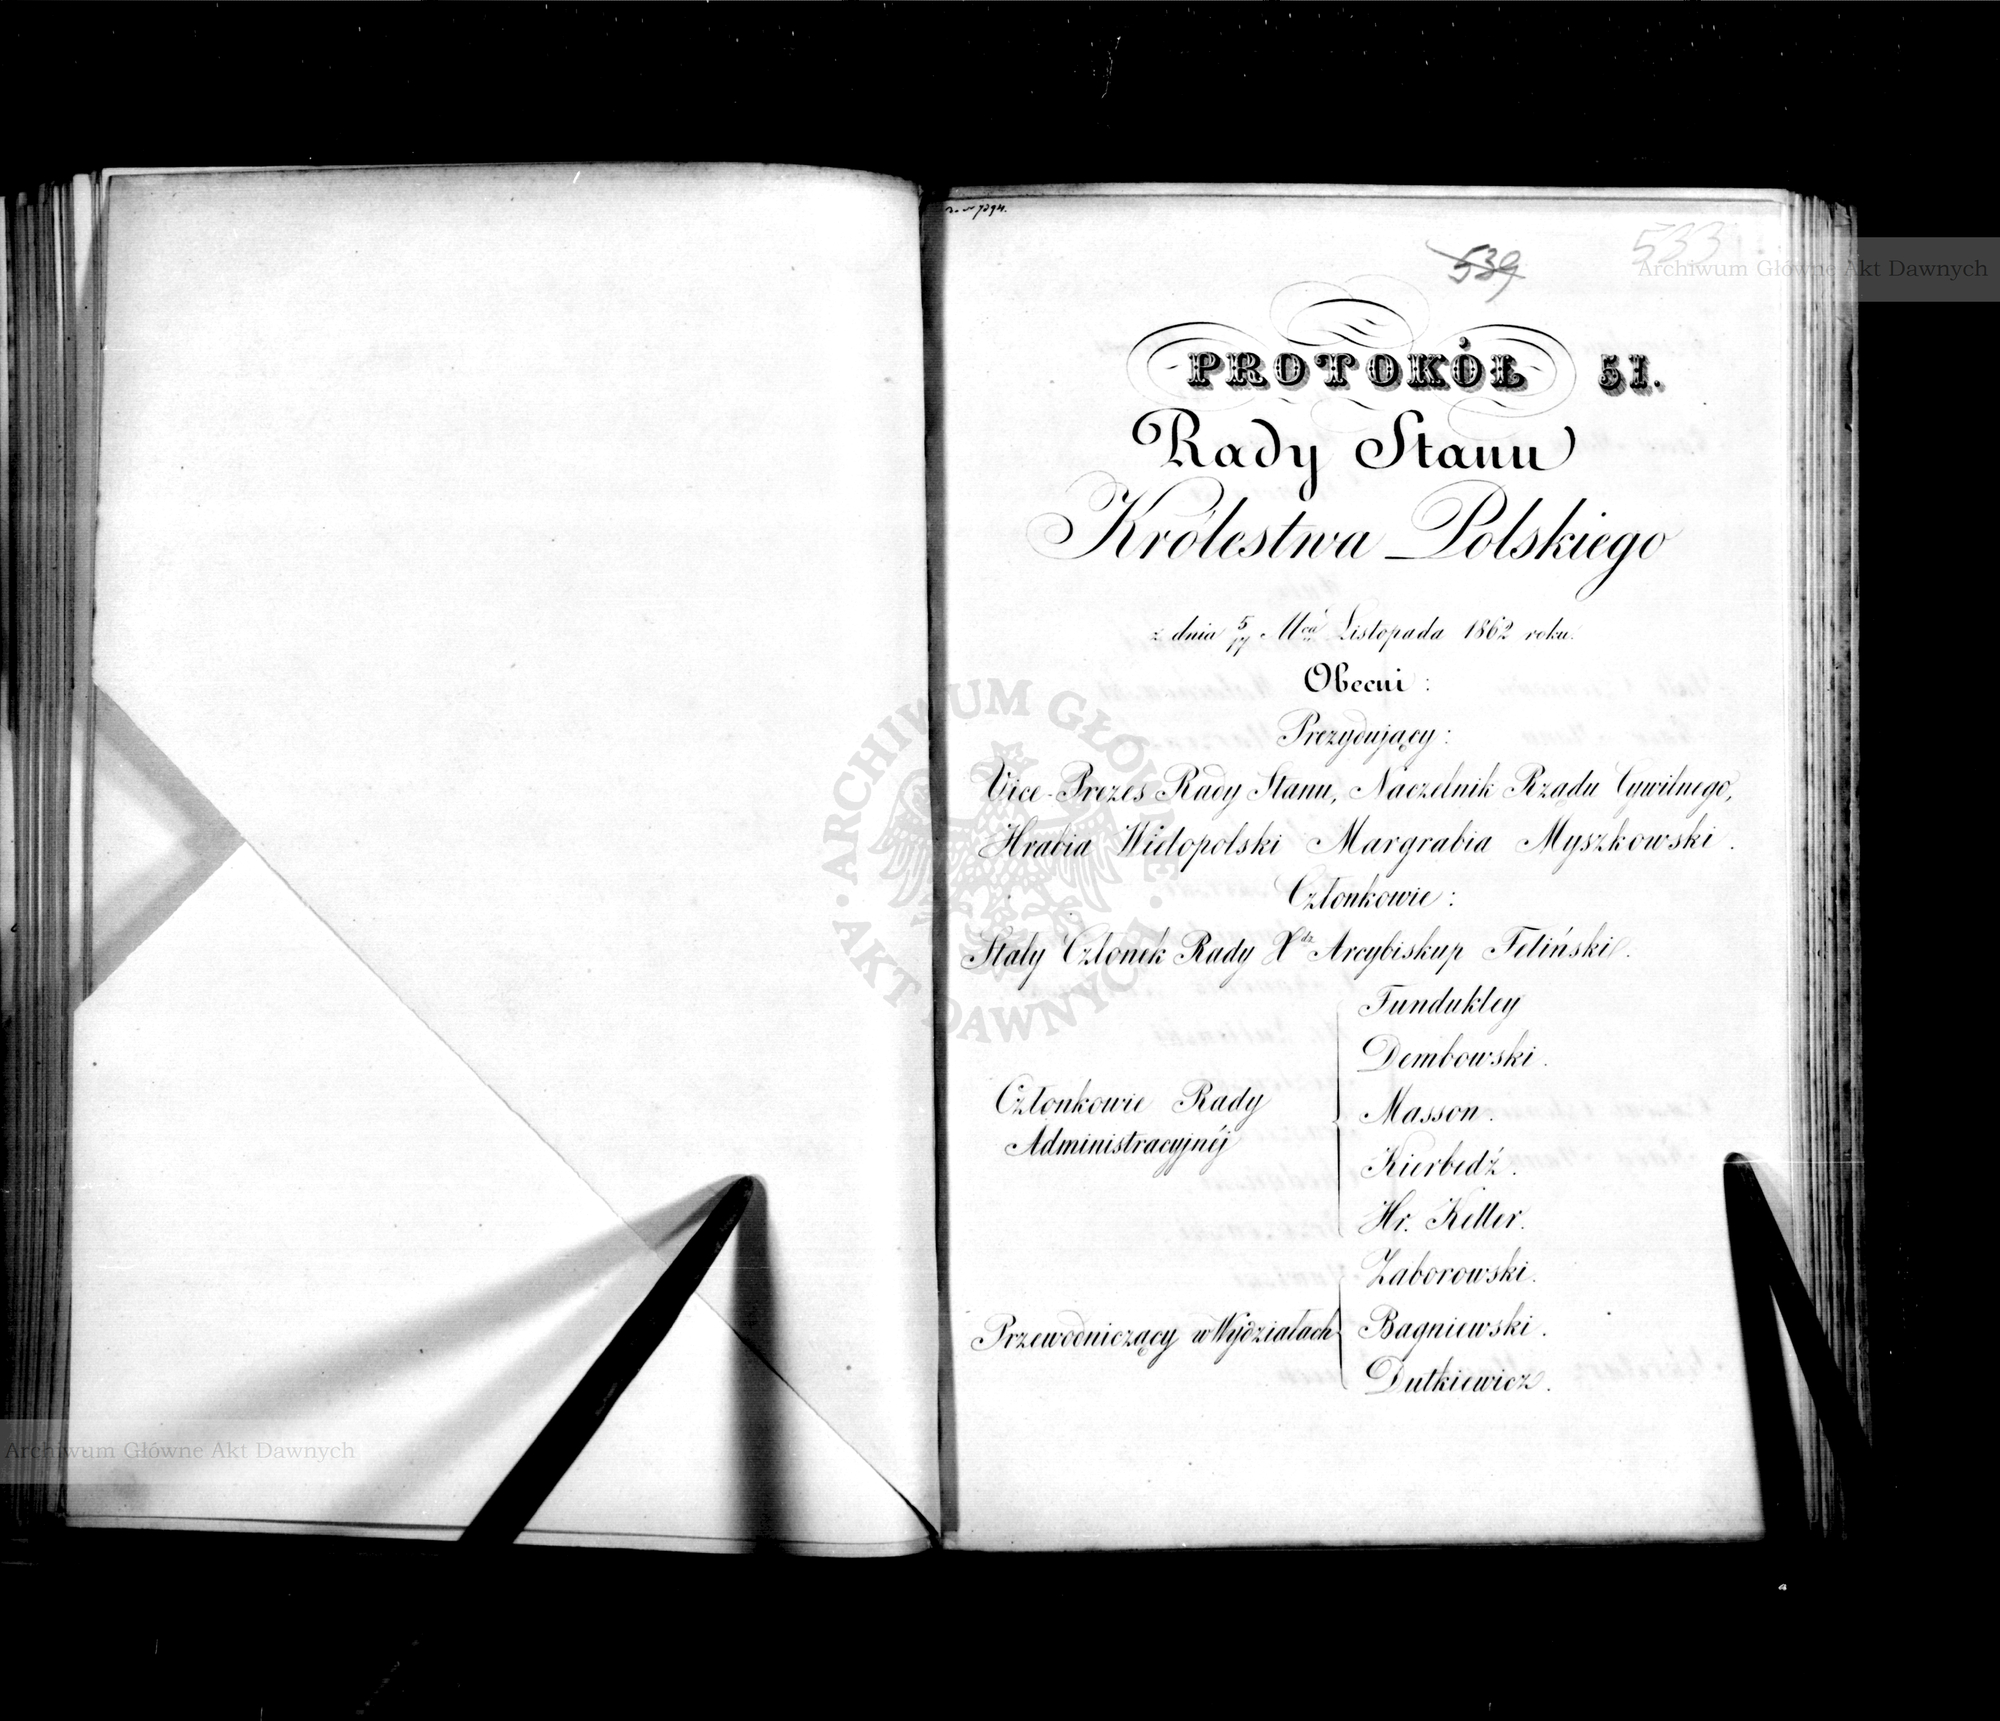 7394.
539
533
Archiwum Główne Akt Dawnych
PROTOKÓŁ 51.
Rady Stanu
Królestwa Polskiego
z dnia 5/17 Mca Listopada 1862 roku.
Obecni:
Prezydujący:
Vice-Prezes Rady Stanu, Naczelnik Rządu Cywilnego,
Hrabia Wielopolski Margrabia Myszkowski.
Członkowie:
Stały Członek Rady Xdz Arcybiskup Feliński.
Fundukley
Dembowski.
Członkowie Rady
Administracyjnéj
Masson.
Kierbedź.
Hr. Keller.
Zaborowski.
Przewodniczący w Wydziałach
Bagniewski.
Dutkiewicz.
ARCHIWUM GŁÓWNE AKT DAWNYCH
Archiwum Główne Akt Dawnych